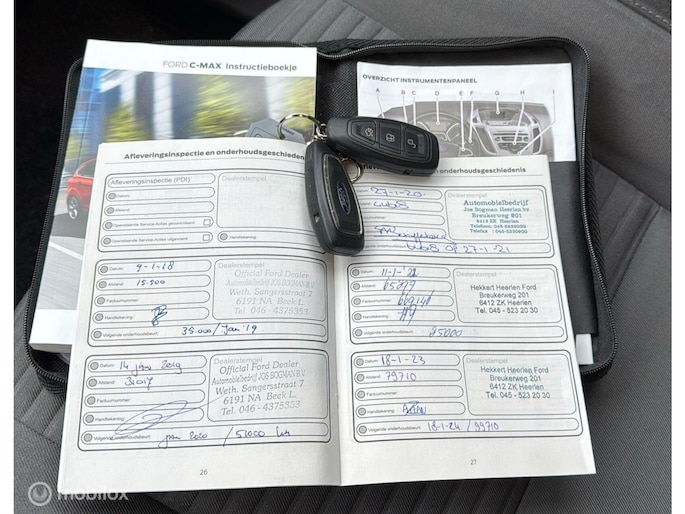 FORD C-MAX Instructieboekje
OVERZICHT INSTRUMENTENPANEEL
A B C D E F G H I
Afleveringsinspectie en onderhoudsgeschiedenis
Afleveringsinspectie (PDI)
Datum:
Afstand:
Openstaande Service-Acties gecontroleerd
Openstaande Service-Acties uitgevoerd
Dealerstempel
Handtekening:
Datum: 9-1-18
Afstand: 15.500
Factuurnummer:
Handtekening:
Volgende onderhoudsbeurt: 35.000/Jan '19
Dealerstempel
Official Ford Dealer
Automobielbedrijf JOS BOGMAN B.V.
Weth. Sangersstraat 7
6191 NA Beek L.
Tel. 046-4375353
Datum: 14 jan 2019
Afstand:
Factuurnummer:
Handtekening:
Volgende onderhoudsbeurt: jan 2020 / 51000 km
Dealerstempel
Official Ford Dealer
Automobielbedrijf JOS BOGMAN B.V.
Weth. Sangersstraat 7
6191 NA Beek L.
Tel. 046-4375353
26
onderhoudsgeschiedenis
27-1-20
Dealerstempel
Automobielbedrijf
Jos Bogman Heerlen bv
Breukerweg 201
6412 ZK Heerlen
Telefoon: 045-5232030
Telefax
op 27-1-21
Datum: 11-1-'22
Afstand: 65877
Factuurnummer:
Handtekening:
Volgende onderhoudsbeurt: 85000
Dealerstempel
Hekkert Heerlen Ford
Breukerweg 201
6412 ZK Heerlen
Tel. 045 - 523 20 30
Datum: 18-1-23
Afstand: 79710
Factuurnummer:
Handtekening:
Volgende onderhoudsbeurt: 18-1-24 / 99710
Dealerstempel
Hekkert Heerlen Ford
Breukerweg 201
6412 ZK Heerlen
Tel. 045 - 523 20 30
27
Ford
mobilox